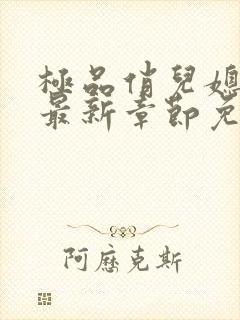 極品俏兒媳
最新章節免
阿歷克斯